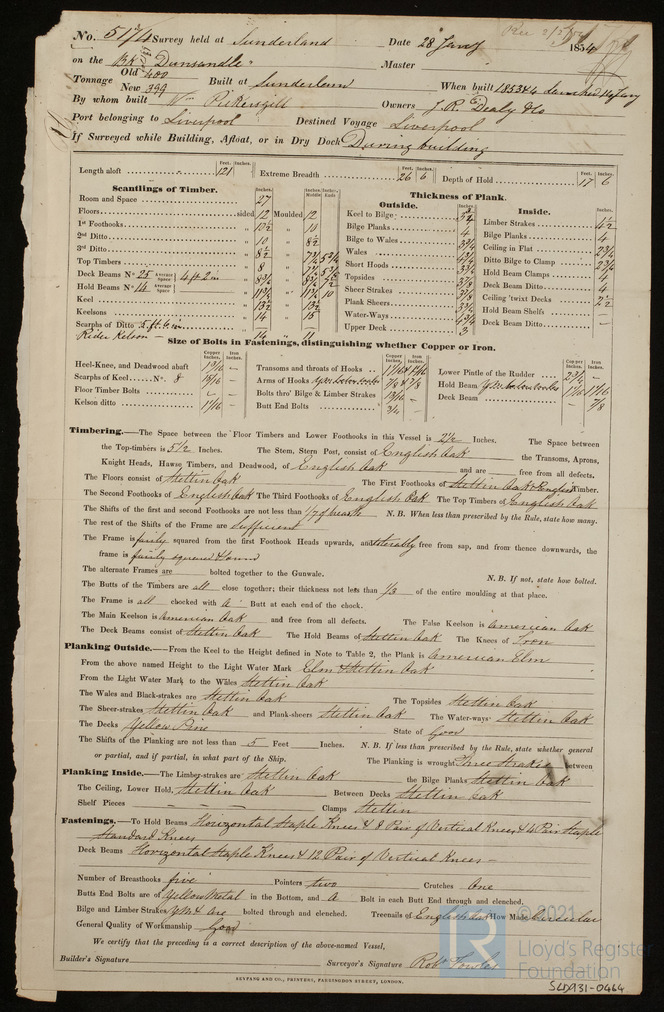 No. 5174 Survey held at Sunderland Date 28 Jany 1854
on the Bk "Dunsandle" Master
Tonnage Old 400 New 399 Built at Sunderland When built 1853 & 4 launched 14 Jany
By whom built Wm Pickersgill Owners J. R. Dealy & Co
Port belonging to Liverpool Destined Voyage Liverpool
If Surveyed while Building, Afloat, or in Dry Dock During building
Length aloft 121 Extreme Breadth 26 6 Depth of Hold 17 6
Scantlings of Timber.
Thickness of Plank.
Outside. Inside.
Room and Space 27
Floors sided 12 Moulded 12
1st Foothooks 10½
2nd Ditto 10 8½
3rd Ditto 8½
Top Timbers 8
Deck Beams No 25 Average Space 4 ft 2 in
Hold Beams No 14 Average Space
Keel 13½ 13½
Keelsons 14 15
Scarphs of Ditto 5 ft 6 in
Rider Kelson 14 11
Keel to Bilge
Bilge Planks 4
Bilge to Wales
Wales
Short Hoods
Topsides
Sheer Strakes
Plank Sheers
Water-Ways
Upper Deck 3
Limber Strakes 4½
Bilge Planks 4
Ceiling in Flat
Ditto Bilge to Clamp
Hold Beam Clamps 4
Deck Beam Ditto 4
Ceiling 'twixt Decks 2½
Hold Beam Shelfs –
Deck Beam Ditto –
Size of Bolts in Fastenings, distinguishing whether Copper or Iron.
Heel-Knee, and Deadwood abaft
Scarphs of Keel No. 8
Floor Timber Bolts
Kelson ditto 1 1/16
Transoms and throats of Hooks
Arms of Hooks
Bolts thro' Bilge & Limber Strakes
Butt End Bolts 3/4
Lower Pintle of the Rudder
Hold Beam
Deck Beam 7/8
Timbering.—The Space between the Floor Timbers and Lower Foothooks in this Vessel is 2½ Inches. The Space between
the Top-timbers is 5½ Inches. The Stem, Stern Post, consist of English Oak the Transoms, Aprons,
Knight Heads, Hawse Timbers, and Deadwood, of English Oak and are free from all defects.
The Floors consist of Stettin Oak The First Foothooks of Stettin Oak & English Timber.
The Second Foothooks of English Oak The Third Foothooks of English Oak The Top Timbers of English Oak
The Shifts of the first and second Foothooks are not less than 1/7 of breadth N. B. When less than prescribed by the Rule, state how many.
The rest of the Shifts of the Frame are Sufficient
The Frame is fairly squared from the first Foothook Heads upwards, and literally free from sap, and from thence downwards, the
frame is fairly squared & sound
The alternate Frames are bolted together to the Gunwale. N. B. If not, state how bolted.
The Butts of the Timbers are all close together; their thickness not less than 1/3 of the entire moulding at that place.
The Frame is all chocked with a Butt at each end of the chock.
The Main Keelson is American Oak and free from all defects. The False Keelson is American Oak
The Deck Beams consist of Stettin Oak The Hold Beams of Stettin Oak The Knees of Iron
Planking Outside.—From the Keel to the Height defined in Note to Table 2, the Plank is American Elm
From the above named Height to the Light Water Mark Elm & Stettin Oak
From the Light Water Mark to the Wales Stettin Oak
The Wales and Black-strakes are Stettin Oak The Topsides Stettin Oak
The Sheer-strakes Stettin Oak and Plank-sheers Stettin Oak The Water-ways Stettin Oak
The Decks Yellow Pine State of Good
The Shifts of the Planking are not less than 5 Feet Inches. N. B. If less than prescribed by the Rule, state whether general
or partial, and if partial, in what part of the Ship. The Planking is wrought Three Strakes between
Planking Inside.—The Limber-strakes are Stettin Oak the Bilge Planks Stettin Oak
The Ceiling, Lower Hold, Stettin Oak Between Decks Stettin Oak
Shelf Pieces – – – – Clamps Stettin
Fastenings.—To Hold Beams Horizontal Staple Knees & 8 Pair of Vertical Knees & 4 Pair Staple
Standard Knees
Deck Beams Horizontal Staple Knees & 12 Pair of Vertical Knees –
Number of Breasthooks five Pointers two Crutches One
Butts End Bolts are of Yellow Metal in the Bottom, and A Bolt in each Butt End through and clenched.
Bilge and Limber Strakes Y M & are bolted through and clenched. Treenails of English Oak How Made Circular
General Quality of Workmanship Good
We certify that the preceding is a correct description of the above-named Vessel,
Builder's Signature Surveyor's Signature Robt Fowles
SEYFANG AND CO., PRINTERS, FARRINGDON STREET, LONDON.
© 2021
Lloyd's Register
Foundation
SLD931-0464